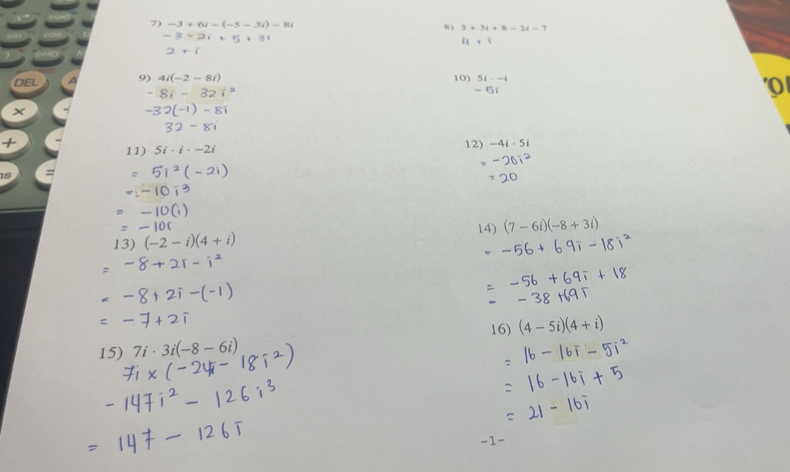 7) −3 + 6i − (−5 − 3i) − 8i
-3 -2i + 5 + 3i
2 + i
8) 3 + 3i + 8 − 2i − 7
4 + i
9) 4i(−2 − 8i)
-8i - 32i²
-32(-1) - 8i
32 - 8i
10) 5i · −i
-5i
11) 5i · i · −2i
= 5i²(-2i)
= -10i³
= -10(i)
= -10i
12) −4i · 5i
= -20i²
= 20
13) (−2 − i)(4 + i)
= -8+2i - i²
= -8+2i -(-1)
= -7+2i
14) (7 − 6i)(−8 + 3i)
= -56 + 69i - 18i²
= -56 + 69i + 18
= -38 +69i
15) 7i · 3i(−8 − 6i)
7i × (-24i - 18i²)
- 147i² - 126i³
= 147 - 126i
16) (4 − 5i)(4 + i)
= 16 - 16i - 5i²
= 16 - 16i + 5
= 21 - 16i
-1-
DEL
×
+
=